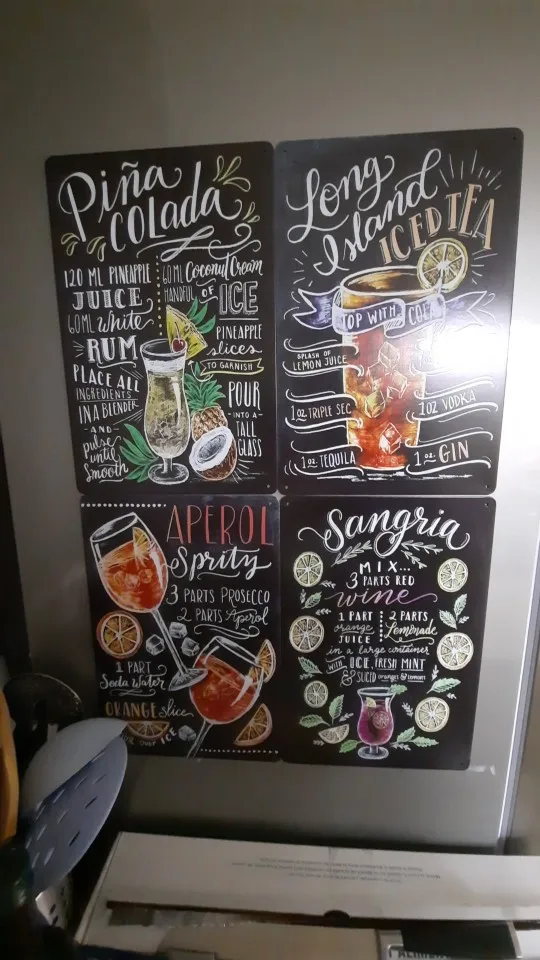 Piña
COLADA
120 ML PINEAPPLE
JUICE
60ML White
RUM
PLACE ALL
INGREDIENTS
IN A BLENDER
-AND-
pulse
until
Smooth
60 ML Coconut Cream
HANDFUL OF ICE
PINEAPPLE
slices
TO GARNISH
POUR
-INTO A-
TALL
GLASS
Long
Island
ICED TEA
TOP WITH
SPLASH OF
LEMON JUICE
1oz TRIPLE SEC
1OZ VODKA
1oz. TEQUILA
1oz GIN
APEROL
Spritz
3 PARTS PROSECCO
2 PARTS Aperol
1 PART
Soda Water
ORANGE slice
OVER ICE
Sangria
MIX...
3 PARTS RED
wine
1 PART
orange
JUICE
2 PARTS
Lemonade
in a large container
WITH ICE, FRESH MINT
& SLICED oranges & lemons